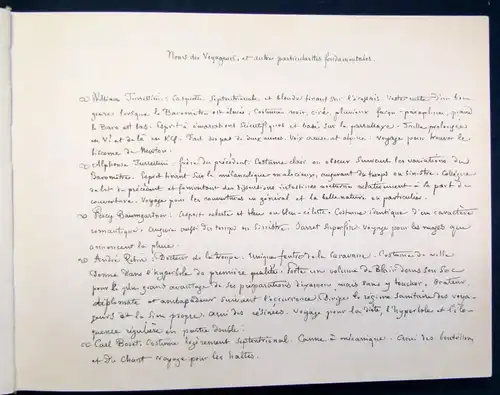 Noms des Voyageurs, et autres particularités fondamentales.
William Turrettini: Casquette septentrionale et blouse tirant sur l'anglais. Veste cuite d'un bon
genre lorsque le Baromètre est élevé; Costume noir, ciré, plusieurs parapluies, quand
le Baro est bas. Esprit à émanations Scientifiques et basé sur le paradoxe. Taille prolongée
en V. et de là en Fait des pas de deux aunes. Voix creuse et alpine. Voyage pour trouver le
binome de Newton.
Alphonse Turrettini: frère du précédent. Costume clair ou obscur suivant les variations du
Baromètre. Esprit tirant sur le mélancolique malicieux, augurant du temps en sinistre. Collègue
de lit du précédent et fomentant des discussions intestines relativement à la part de
couverture. Voyage pour les couvertures en général et la belle nature en particulier.
Percy Baumgartner: Aspect céleste et bleu ou bleu-céleste. Costume identique d'un caractère
romantique: Augure aussi du temps en sinistre. Jarret superfin. Voyage pour les nuages qui
annoncent la pluie.
André : Docteur de la troupe. Unique fantes de la Caravane. Costume de ville
Donne dans l'hyperbole de première qualité. Porte un volume de Blair dans son sac
pour le plus grand avantage de ses préparations d'examen mais sans y toucher. Orateur,
diplomate et ambassadeur suivant l'occurrence. Dirige le régime sanitaire des voya-
geurs et le sien propre. ami des cédines. Voyage pour la diète, l'hyperbole et l'élo-
quence régulière en partie double.
Carl Bovet. Costume légèrement septentrional. Canne à mécanique. Ami des bouteilles
et du chant. Voyage pour les haltes.